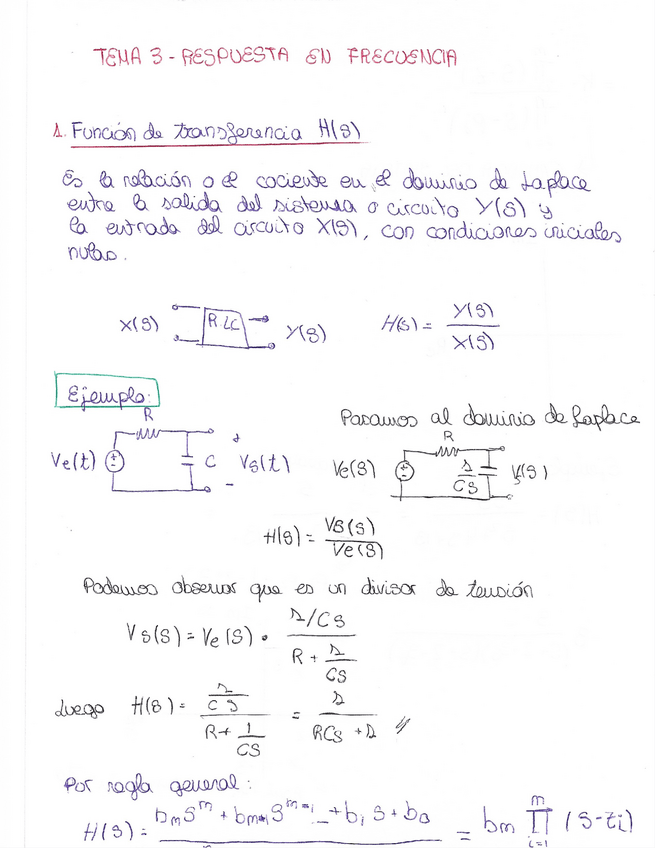 TEMA 3 - RESPUESTA EN FRECUENCIA
1. Función de transferencia H(s)
Es la relación o el cociente en el dominio de Laplace
entre la salida del sistema o circuito Y(s) y
la entrada del circuito X(s), con condiciones iniciales
nulas.
X(s) R.LC Y(s) H(s) = Y(s) / X(s)
Ejemplo:
Pasamos al dominio de Laplace
R R
Ve(t) C + Vs(t) - Ve(s) 1/CS V(s)
H(s) = Vs(s) / Ve(s)
Podemos observar que es un divisor de tensión
Vs(s) = Ve(s) · 1/CS / R + 1/CS
Luego H(s) = 1/CS / R + 1/CS = 1 / RCS + 1 //
Por regla general:
H(s) = bm S^m + bm-1 S^m-1 _ + b1 S + b0 = bm m ∏ i=1 (s-zi)